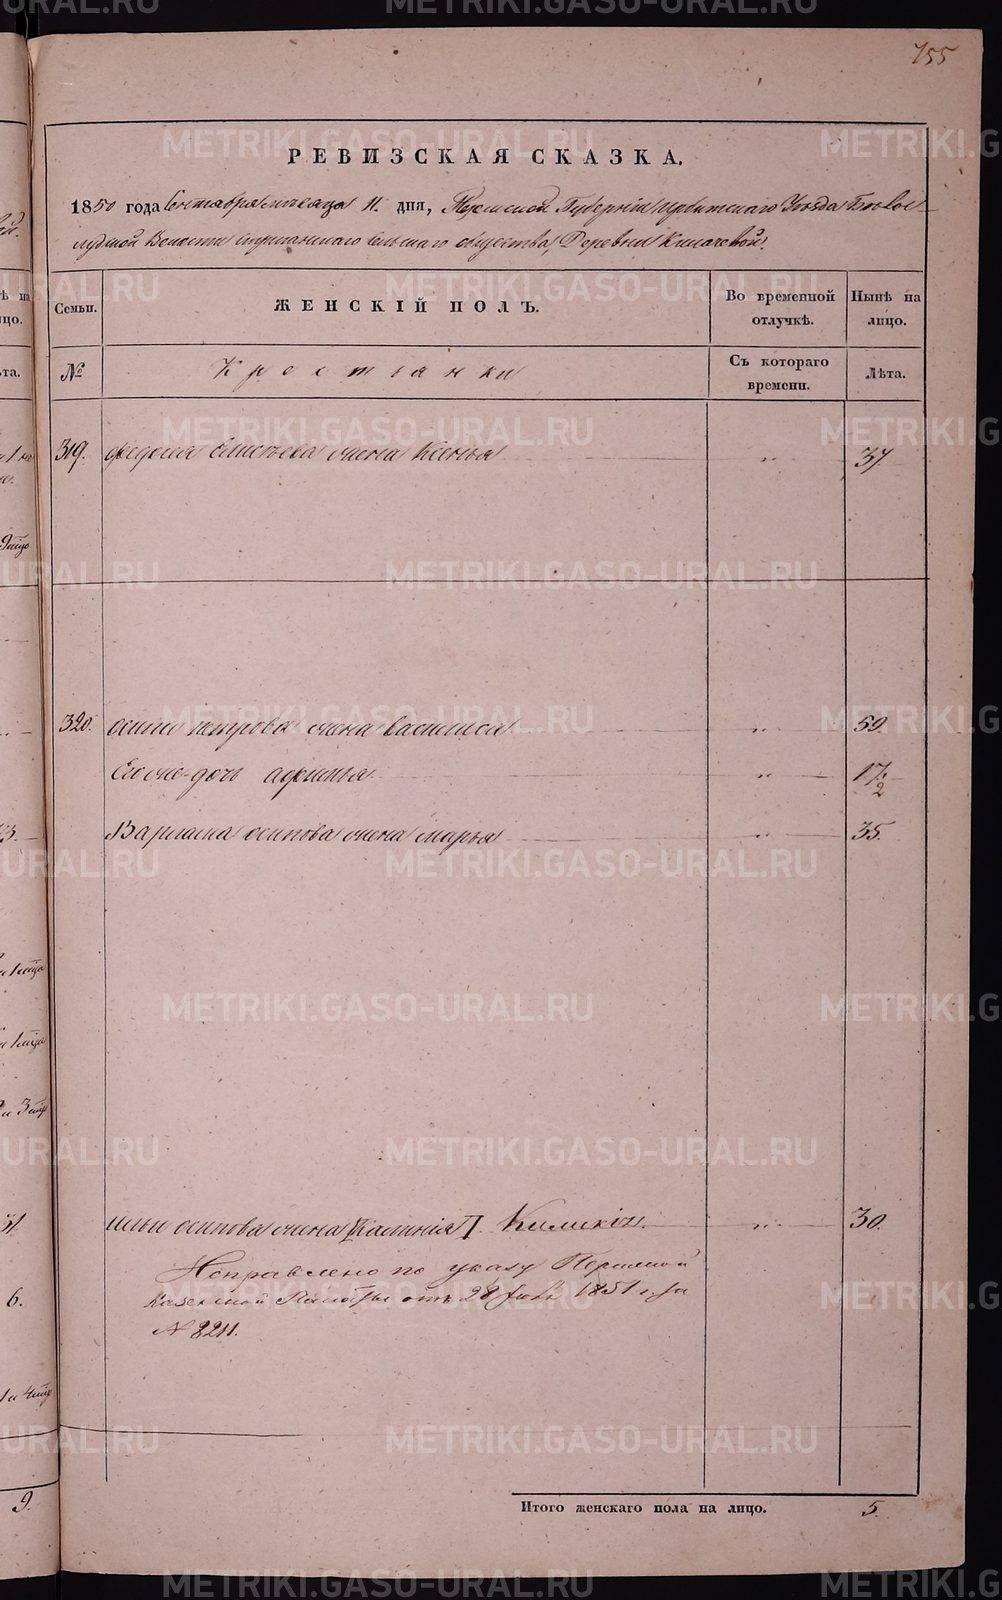 155
РЕВИЗСКАЯ СКАЗКА.
1850 года Сентября месяца 11. дня, Пермской Губерніи Ирбитскаго Уѣзда Бѣло-
слудской Волости Стриганскаго сельскаго общества, Деревни Кила­чевой.
Семьи. ЖЕНСКІЙ ПОЛЪ. Во временной отлучкѣ. Нынѣ на лицо.
№ Крестьянки Съ котораго времени. Лѣта.
319. Федосея Елисѣева жена Ксенья " 37.
320. Осипа петрова жена василиса " 59.
Его же дочь афимья " 17 1/2
Варлама осипова жена марья " 35.
Ильи осипова жена [Калинія] " 30.
Исправлено по указу Пермской
Казенной Палаты отъ 28 1851 г. за
№ 8211.
Итого женскаго пола на лицо. 5.
METRIKI.GASO-URAL.RU